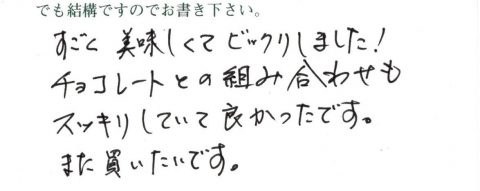 でも結構ですのでお書き下さい。
すごく美味しくてビックリしました!
チョコレートとの組み合わせも
スッキリしていて良かったです。
また買いたいです。